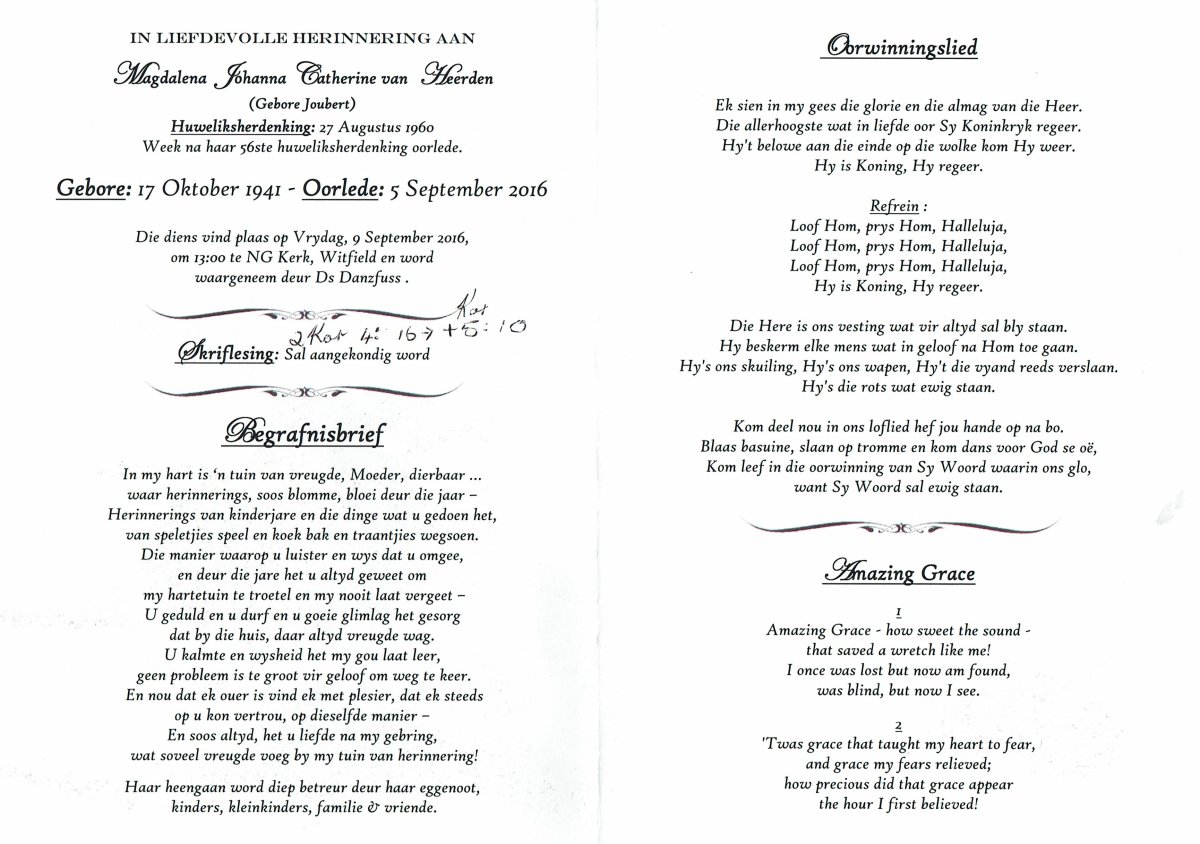 IN LIEFDEVOLLE HERINNERING AAN
Magdalena Johanna Catherine van Heerden
(Gebore Joubert)
Huweliksherdenking: 27 Augustus 1960
Week na haar 56ste huweliksherdenking oorlede.
Gebore: 17 Oktober 1941 - Oorlede: 5 September 2016
Die diens vind plaas op Vrydag, 9 September 2016,
om 13:00 te NG Kerk, Witfield en word
waargeneem deur Ds Danzfuss .
Kor
2 Kor 4: 16 → + 5: 10
Skriflesing: Sal aangekondig word
Begrafnisbrief
In my hart is ‘n tuin van vreugde, Moeder, dierbaar ...
waar herinnerings, soos blomme, bloei deur die jaar –
Herinnerings van kinderjare en die dinge wat u gedoen het,
van speletjies speel en koek bak en traantjies wegsoen.
Die manier waarop u luister en wys dat u omgee,
en deur die jare het u altyd geweet om
my hartetuin te troetel en my nooit laat vergeet –
U geduld en u durf en u goeie glimlag het gesorg
dat by die huis, daar altyd vreugde wag.
U kalmte en wysheid het my gou laat leer,
geen probleem is te groot vir geloof om weg te keer.
En nou dat ek ouer is vind ek met plesier, dat ek steeds
op u kon vertrou, op dieselfde manier –
En soos altyd, het u liefde na my gebring,
wat soveel vreugde voeg by my tuin van herinnering!
Haar heengaan word diep betreur deur haar eggenoot,
kinders, kleinkinders, familie & vriende.
Oorwinningslied
Ek sien in my gees die glorie en die almag van die Heer.
Die allerhoogste wat in liefde oor Sy Koninkryk regeer.
Hy't belowe aan die einde op die wolke kom Hy weer.
Hy is Koning, Hy regeer.
Refrein :
Loof Hom, prys Hom, Halleluja,
Loof Hom, prys Hom, Halleluja,
Loof Hom, prys Hom, Halleluja,
Hy is Koning, Hy regeer.
Die Here is ons vesting wat vir altyd sal bly staan.
Hy beskerm elke mens wat in geloof na Hom toe gaan.
Hy's ons skuiling, Hy's ons wapen, Hy't die vyand reeds verslaan.
Hy's die rots wat ewig staan.
Kom deel nou in ons loflied hef jou hande op na bo.
Blaas basuine, slaan op tromme en kom dans voor God se oë,
Kom leef in die oorwinning van Sy Woord waarin ons glo,
want Sy Woord sal ewig staan.
Amazing Grace
1
Amazing Grace - how sweet the sound -
that saved a wretch like me!
I once was lost but now am found,
was blind, but now I see.
2
'Twas grace that taught my heart to fear,
and grace my fears relieved;
how precious did that grace appear
the hour I first believed!